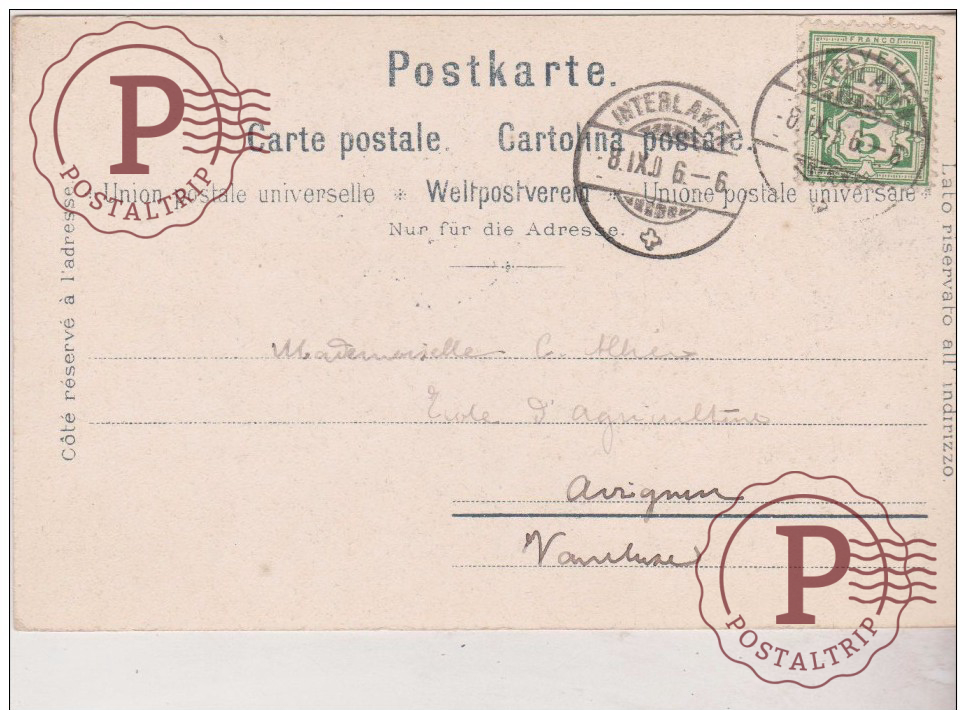 Postkarte.
Carte postale. Cartolina postale.
* Union postale universelle * Weltpostverein * Unione postale universale *
Nur für die Adresse.
Côté réservé à l'adresse.
Lato riservato all' indirizzo.
INTERLAKEN
-8.IX.0 6.-6
FRANCO
HELVETIA
5
-8.IX.0 6.-6
Mademoiselle C.
Ecole d'Agriculture
Avignon
Vaucluse
P
POSTALTRIP
P
POSTALTRIP